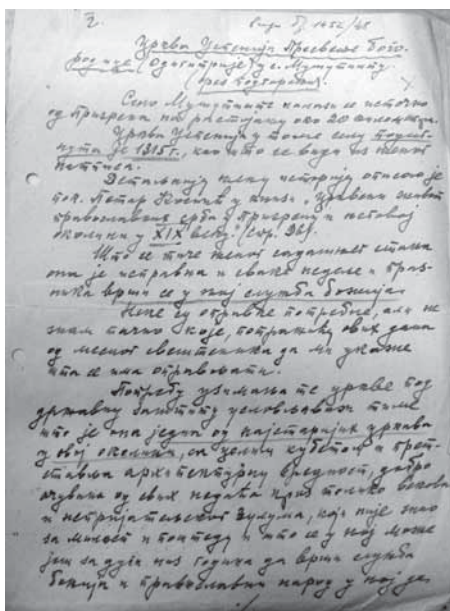 2.
бр. 1452/48
Црква Успенија Пресвете Бого-
родице (Одигитрије) у с. Мушутишту
(пред Подгорјем).
Село Мушутиште налази се источно
од Призрена на растојању око 20 километара.
Црква Успенија у томе селу подиг-
нута је 1315 г., као што се види из њеног
натписа.
Земљишну њену историју описао је
пок. Петар Костић у књизи „Црквени живот
православних срба у Призрену и његовој
околини у XIX веку“ (стр. 96).
Што се тиче њеног садашњег стања
она је исправна и сваке недеље и праз-
ника врши се у њој служба божија.
Неке су оправке потребне, али не
знам тачно које, потражићу ових дана
од месног свештеника да ми укаже
шта се има оправљати.
Потребу узимања те цркве под
државну заштиту условљавам тиме
што је она једна од најстаријих цркава
у овој околини, са целим кубетом и прет-
ставља архитектурну вредност, добро
очувана од свих недаћа кроз толико векова
и непријатељског зулума, који није знао
за милост и поштеду и што се у њој може
још за дуги низ година да врши служба
божија и православни народ у њој да